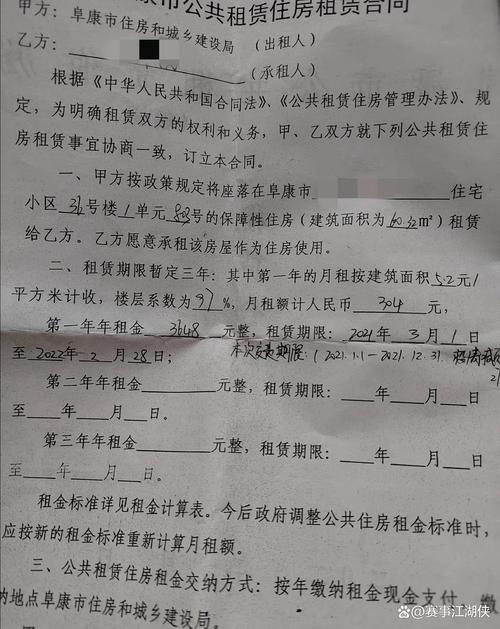 康市公共租赁住房租赁合同
甲方：阜康市住房和城乡建设局 （出租人）
乙方： （承租人）
根据《中华人民共和国合同法》、《公共租赁住房管理办法》、规
定，为明确租赁双方的权利和义务，甲、乙双方就下列公共租赁住
房租赁事宜协商一致，订立本合同。
一、甲方按政策规定将座落在阜康市 住宅
小区 36 号楼 1 单元 号的保障性住房（建筑面积为 60.32 m²）租赁
给乙方。乙方愿意承租该房屋作为住房使用。
二、租赁期限暂定三年：其中第一年的月租按建筑面积 5.2 元/
平方米计收，楼层系数为 97 %，月租额计人民币 304 元，
第一年年租金 3648 元整，租赁期限： 2021 年 3 月 1 日
至 2022 年 2 月 28 日；
本次 期限：（2021.1.1－2021.12.31.
第二年年租金 元整，租赁期限： 年 月 日
至 年 月 日。
第三年年租金 元整，租赁期限： 年 月 日
至 年 月 日。
租金标准详见租金计算表。今后政府调整公共住房租金标准时，
应按新的租金标准重新计算月租额。
三、公共租赁住房租金交纳方式：按年缴纳租金现金支付，缴
纳地点阜康市住房和城乡建设局。
@赛事江湖侠